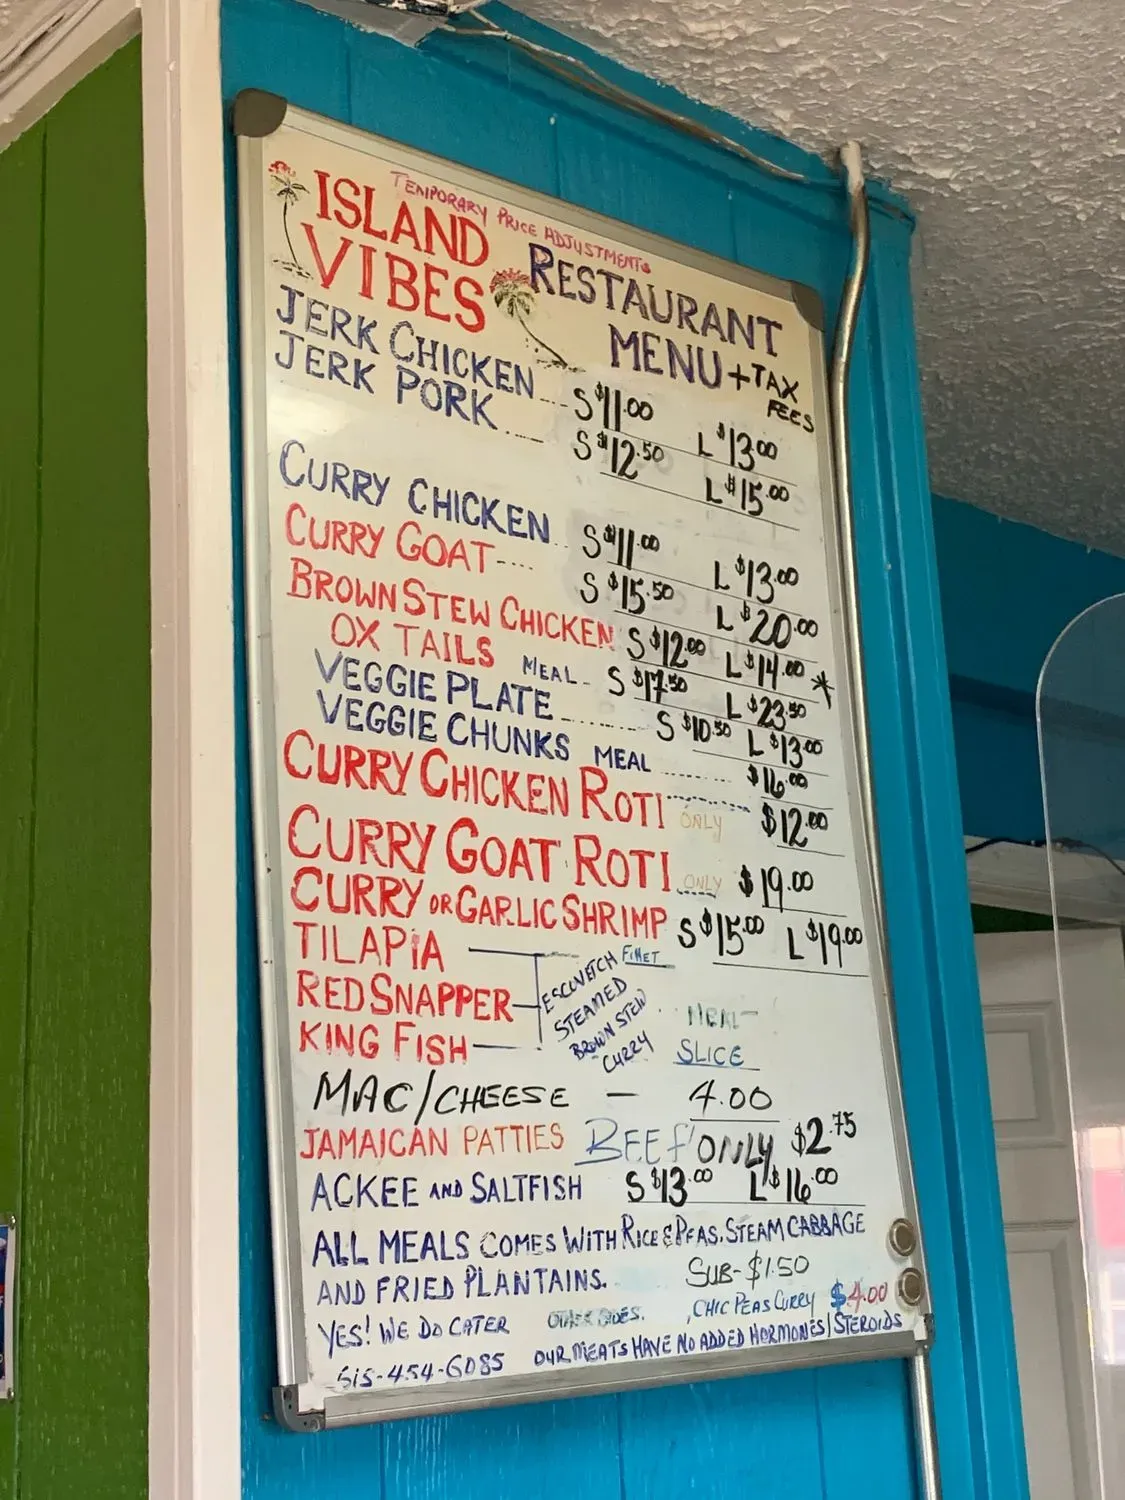 TEMPORARY PRICE ADJUSTMENTS
ISLAND VIBES
RESTAURANT MENU + TAX FEES
JERK CHICKEN S $11.00 L $13.00
JERK PORK S $12.50 L $15.00
CURRY CHICKEN S $11.00 L $13.00
CURRY GOAT S $15.50 L $20.00
BROWN STEW CHICKEN S $12.00 L $14.00 *
OX TAILS MEAL S $17.50 L $23.50
VEGGIE PLATE S $10.50 L $13.00
VEGGIE CHUNKS MEAL $16.00
CURRY CHICKEN ROTI ONLY $12.00
CURRY GOAT ROTI ONLY $19.00
CURRY OR GARLIC SHRIMP S $15.00 L $19.00
TILAPIA
RED SNAPPER
KING FISH
ESCOVETCH FILLET
STEAMED
BROWN STEW
CURRY
MEAL-
SLICE
MAC/CHEESE — 4.00
JAMAICAN PATTIES BEEF ONLY $2.75
ACKEE AND SALTFISH S $13.00 L $16.00
ALL MEALS COMES WITH RICE & PEAS. STEAM CABBAGE
AND FRIED PLANTAINS. SUB-$1.50
YES! WE DO CATER OTHER SIDES. CHIC PEAS CURRY $4.00
515-454-6085 OUR MEATS HAVE NO ADDED HORMONES/STEROIDS